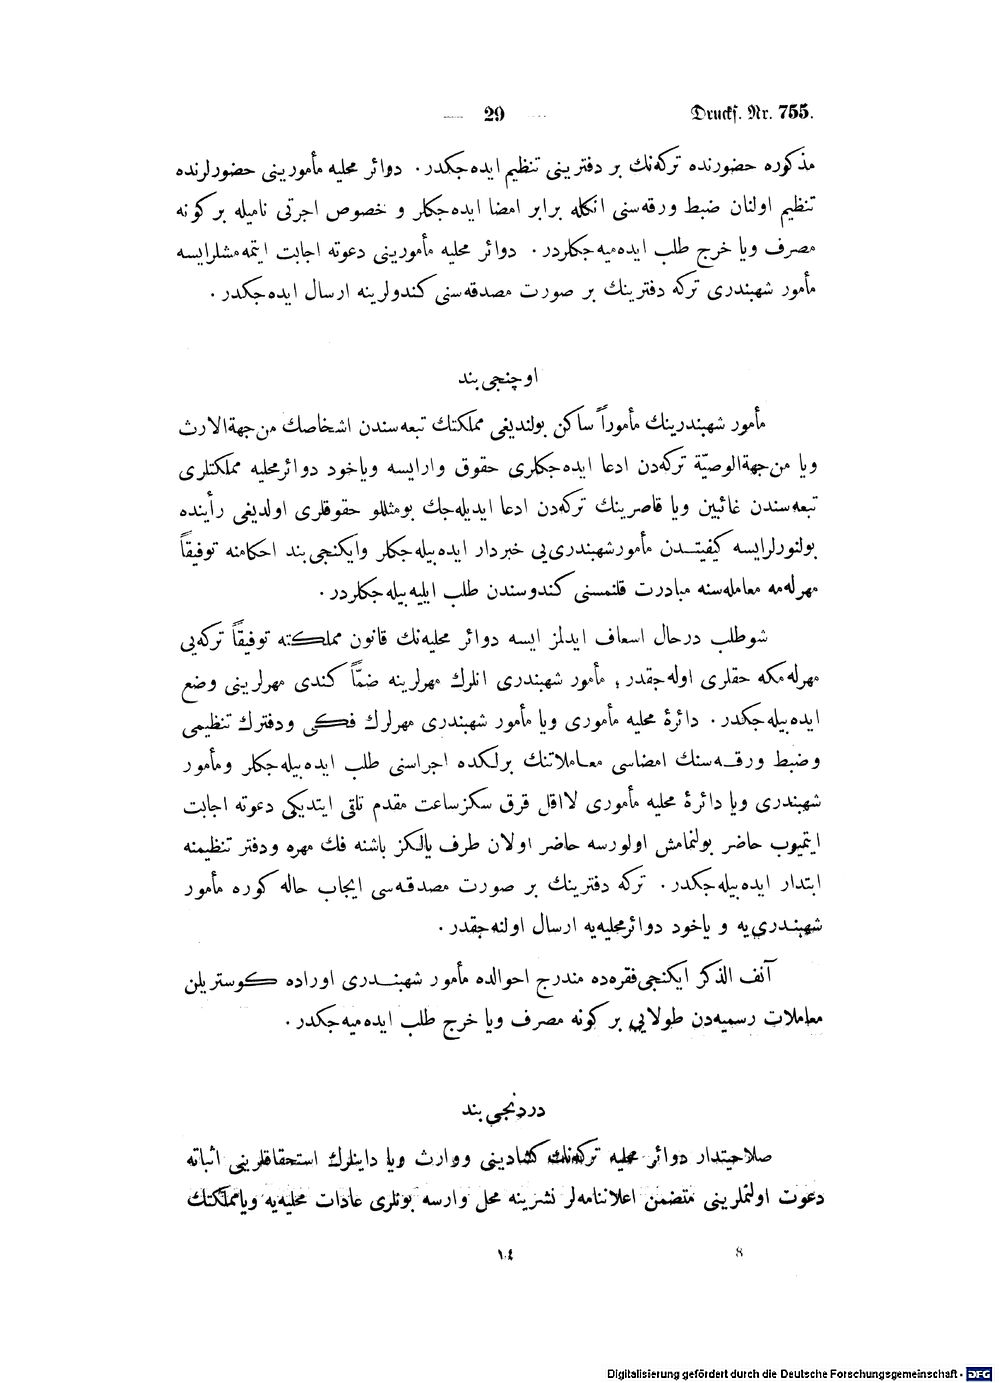 — 29 —
Drucks. Nr. 755.
مذکوره حضورنده ترکه‌نك بر دفترینی تنظیم ایده‌جکدر. دوائر محلیه مأمورینی حضورلرنده
تنظیم اولنان ضبط ورقه‌سنی انکله برابر امضا ایده‌جکلر و خصوص اجرتی نامیله بر کونه
مصرف ویا خرج طلب ایده‌میه‌جکلردر. دوائر محلیه مأمورینی دعوته اجابت ایتمه‌مشلرایسه
مأمور شهبندری ترکه دفترینك بر صورت مصدقه‌سنی کندولرینه ارسال ایده‌جکدر.
اوچنجی بند
مأمور شهبندرینك مأموراً ساکن بولندیغی مملکتك تبعه‌سندن اشخاصك من‌جهة‌الارث
ویا من‌جهة‌الوصیّة ترکه‌دن ادعا ایده‌جکلری حقوق وارایسه ویاخود دوائرمحلیه مملکتلری
تبعه‌سندن غائبین ویا قاصرینك ترکه‌دن ادعا ایدیله‌جك بومثللو حقوقلری اولدیغی رأینده
بولنورلرایسه کیفیتـدن مأمورشهبندری‌یی خبردار ایده‌بیله‌جکلر وایکنجی بند احکامنه توفیقاً
مهرله‌مه معامله‌سنه مبادرت قلنمسنی کندوسندن طلب ایلیه‌بیله‌جکلردر.
شوطلب درحال اسعاف ایدلمز ایسه دوائر محلیه‌نك قانون مملکته توفیقاً ترکه‌یی
مهرله‌مکه حقلری اوله‌جقدر؛ مأمور شهبندری انلرك مهرلرینه ضمّاً کندی مهرلرینی وضع
ایده‌بیله‌جکدر. دائرۀ محلیه مأموری ویا مأمور شهبندری مهرلرك فکی ودفترك تنظیمی
وضبط ورقـه‌سنك امضاسی معـاملاتنك برلکده اجراسنی طلب ایده‌بیله‌جکلر ومأمور
شهبندری ویا دائرۀ محلیه مأموری لااقل قرق سکزساعت مقدم تلقی ایتدیکی دعوته اجابت
ایتمیوب حاضر بولنمامش اولورسه حاضر اولان طرف یالکز باشنه فك مهره ودفتر تنظیمنه
ابتدار ایده‌بیله‌جکدر. ترکه دفترینك بر صورت مصدقه‌سی ایجاب حاله کوره مأمور
شهبندری‌یه و یاخود دوائرمحلیه‌یه ارسال اولنه‌جقدر.
آنف الذکر ایکنجی فقره‌ده مندرج احوالده مأمور شهبنـدری اوراده کوستریلن
معاملات رسمیه‌دن طولایی بر کونه مصرف ویا خرج طلب ایده‌میه‌جکدر.
دردنجی بند
صلاحیتدار دوائر محلیه ترکه‌نك کشادینی ووارث ویا داینلرك استحقاقلرینی اثباته
دعوت اولنملرینی متضمن اعلاننامه‌لر نشرینه محل وارسه بونلری عادات محلیه‌یه ویامملکتك
١٠٤
8
Digitalisierung gefördert durch die Deutsche Forschungsgemeinschaft - DFG